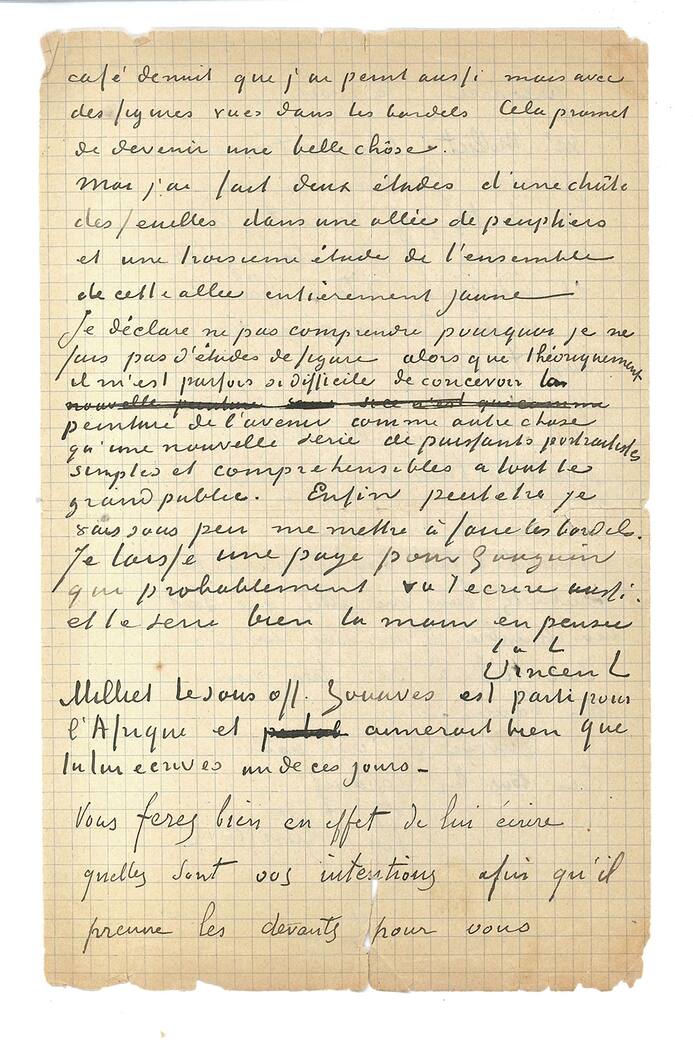 café de nuit que j'ai peint aussi mais avec
des figures vues dans les bordels Cela promet
de devenir une belle chôse.
Moi j'ai fait deux études d'une chûte
des feuilles dans une allée de peupliers
et une troisieme étude de l'ensemble
de cette allée entièrement jaune
Je déclare ne pas comprendre pourquoi je ne
fais pas d'études de figure alors que théoriquement
il m'est parfois si difficile de concevoir la
nouvelle peinture sans si ce n'est que comme
peinture de l'avenir comme autre chose
qu'une nouvelle serie de puissants portraitistes
simples et comprehensibles a tout le
grand public. Enfin peut etre je
vais sous peu me mettre à faire les bordels.
Je laisse une page pour Gauguin
qui probablement va t'ecrire aussi.
et te serre bien la main en pensee
t. à t.
Vincent
Milliet le sous off. Zouaves est parti pour
l'Afrique et aimerait bien que
tu lui ecrives un de ces jours –
Vous ferez bien en effet de lui écrire
quelles sont vos intentions afin qu'il
prenne les devants pour vous